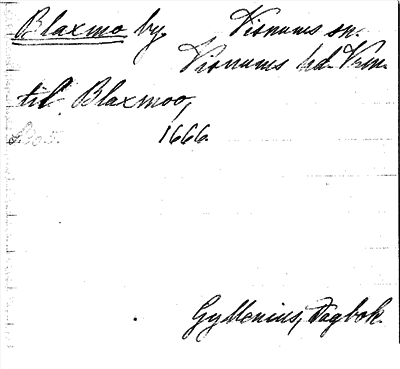 Blaxmo by. Visnums sn.
Visnums hd. Vrm.
til Blaxmoo,
1666.
Gyllenius, Dagbok.